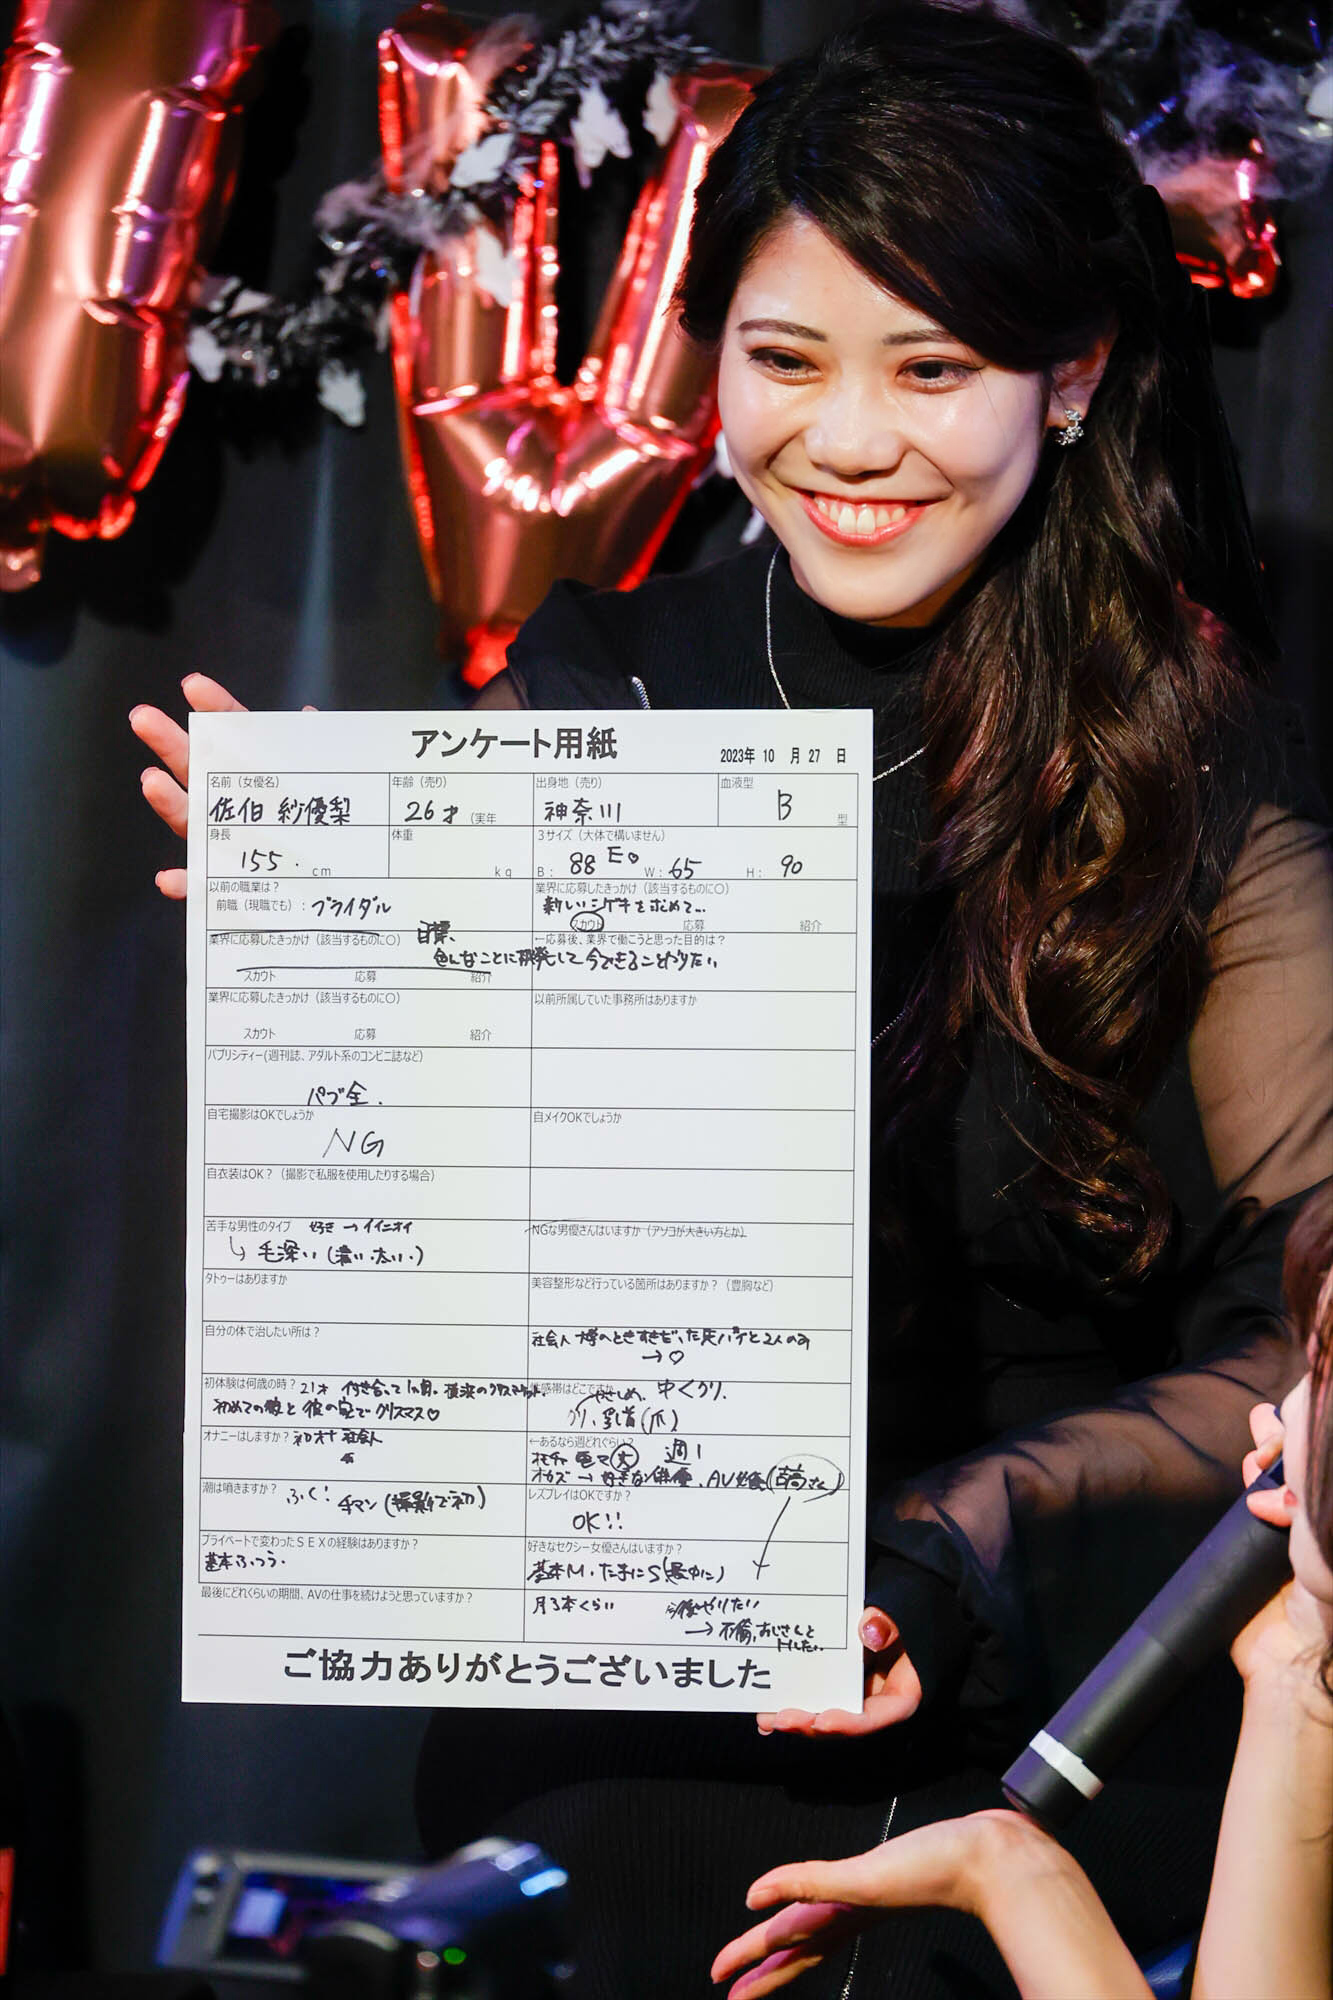 アンケート用紙
2023年 10 月 27 日
名前（女優名） 年齢（売り） 出身地（売り） 血液型
佐伯 紗優梨 26才 （実年 神奈川 B 型
身長 体重 3サイズ（大体で構いません）
155. cm kg B： 88 E♡ W：65 H： 90
以前の職業は？ 業界に応募したきっかけ（該当するものに〇）
前職（現職でも）：ブライダル 新しいシゲキを求めて…
スカウト 応募 紹介
業界に応募したきっかけ（該当するものに〇） 目標、 ←応募後、業界で働こうと思った目的は？
色んなことに挑発して今できることやりたい
スカウト 応募 紹介
業界に応募したきっかけ（該当するものに〇） 以前所属していた事務所はありますか
スカウト 応募 紹介
パブリシティー(週刊誌、アダルト系のコンビニ誌など)
パブ全.
自宅撮影はOKでしょうか 自メイクOKでしょうか
NG
自衣装はOK？（撮影で私服を使用したりする場合）
苦手な男性のタイプ 好き→イイニオイ NGな男優さんはいますか（アソコが大きい方とか）
毛深い（濃い・太い・）
タトゥーはありますか 美容整形など行っている箇所はありますか？（豊胸など）
自分の体で治したい所は？ 社会人
→♡
初体験は何歳の時？21才 付き合って1ヵ月。横浜のクリスマスマーケット. 性感帯はどこですか
初めての彼と彼の家でクリスマス♡ クリ、乳首（爪）
オナニーはしますか？ 社会人 ←あるなら週どれぐらい？ 週1
オカズ→好きな俳優、AV
潮は噴きますか？ ふく！ 手マン（撮影で初） レズプレイはOKですか？
OK!!
プライベートで変わったSEXの経験はありますか？ 好きなセクシー女優さんはいますか？
基本ふつう. 基本M.たまにS
最後にどれくらいの期間、AVの仕事を続けようと思っていますか？ 月3本くらい 今後やりたい
→不倫、おじさんと
ご協力ありがとうございました